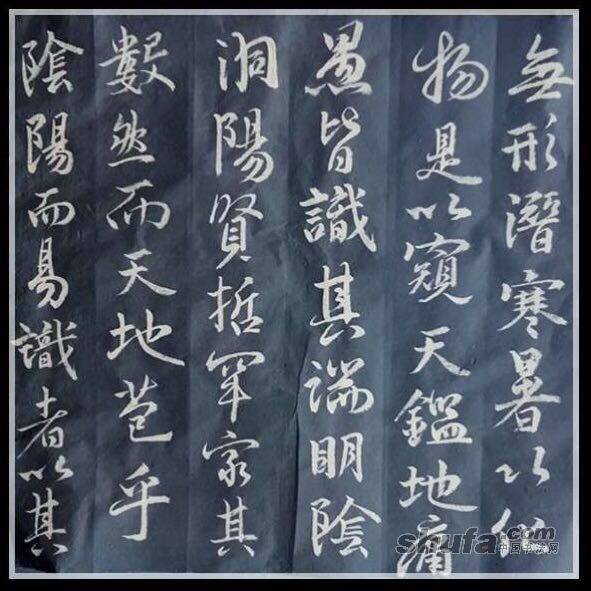 無形潛寒暑以化
物是以窺天鑑地庸
愚皆識其端明陰
洞陽賢哲罕窮其
數然而天地苞乎
陰陽而易識者以其
shufa.com
中国书法网